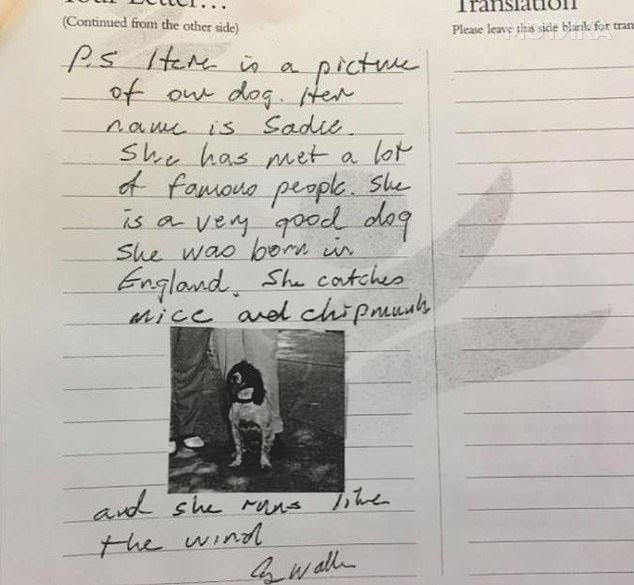 Your Letter...
(Continued from the other side)
P.S Here is a picture
of our dog. Her
name is Sadie.
She has met a lot
of famous people. She
is a very good dog
She was born in
England. She catches
mice and chipmunks
and she runs like
the wind
G Walker
Translation
Please leave this side blank for tran